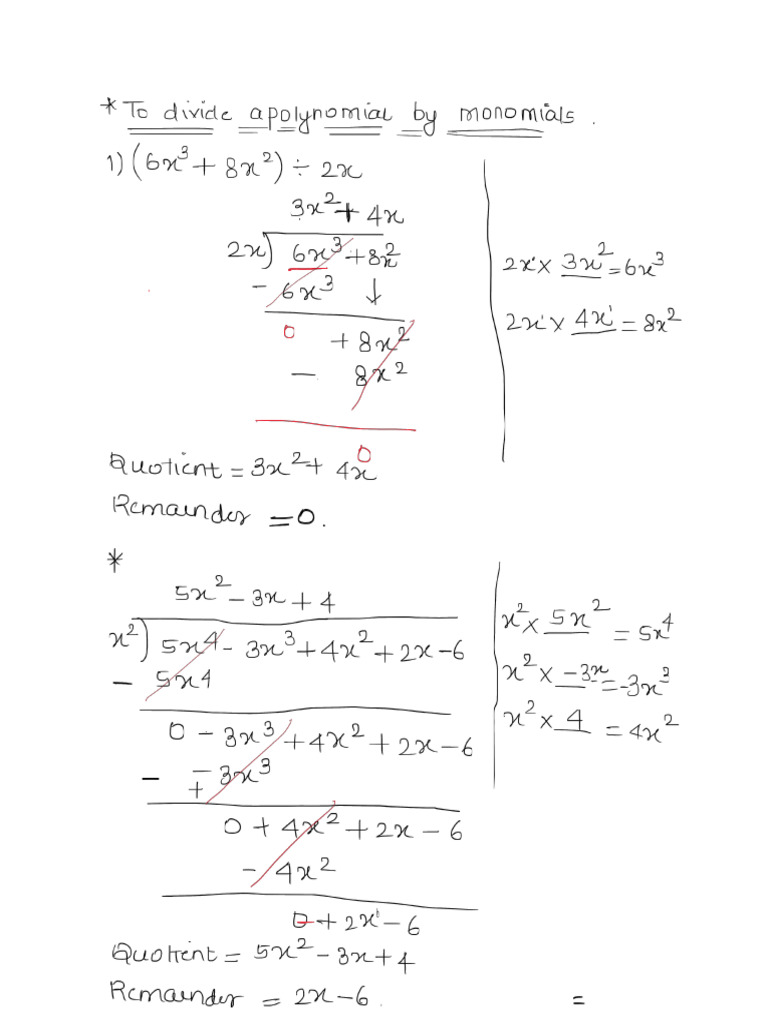 * To divide a polynomial by monomials.
1) (6x³ + 8x²) ÷ 2x
3x² + 4x
2x) 6x³ + 8x²
- 6x³ ↓
0 + 8x²
- 8x²
0
2x¹ × 3x² = 6x³
2x¹ × 4x¹ = 8x²
Quotient = 3x² + 4x
Remainder = 0.
*
5x² - 3x + 4
x²) 5x⁴ - 3x³ + 4x² + 2x - 6
- 5x⁴
0 - 3x³ + 4x² + 2x - 6
- - 3x³
+
0 + 4x² + 2x - 6
- 4x²
0 + 2x¹ - 6
x² × 5x² = 5x⁴
x² × -3x = -3x³
x² × 4 = 4x²
Quotient = 5x² - 3x + 4
Remainder = 2x - 6.
=